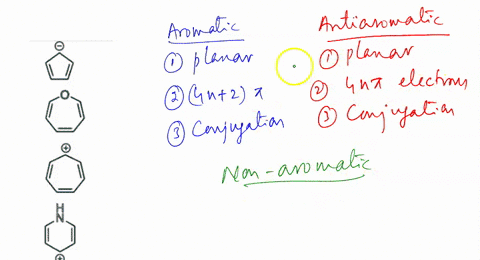 Aromatic
① planar
② (4n+2) π
③ Conjugation
Antiaromatic
① planar
② 4nπ electrons
③ Conjugation
Non-aromatic
⊖
O
⊕
H
N
⊕